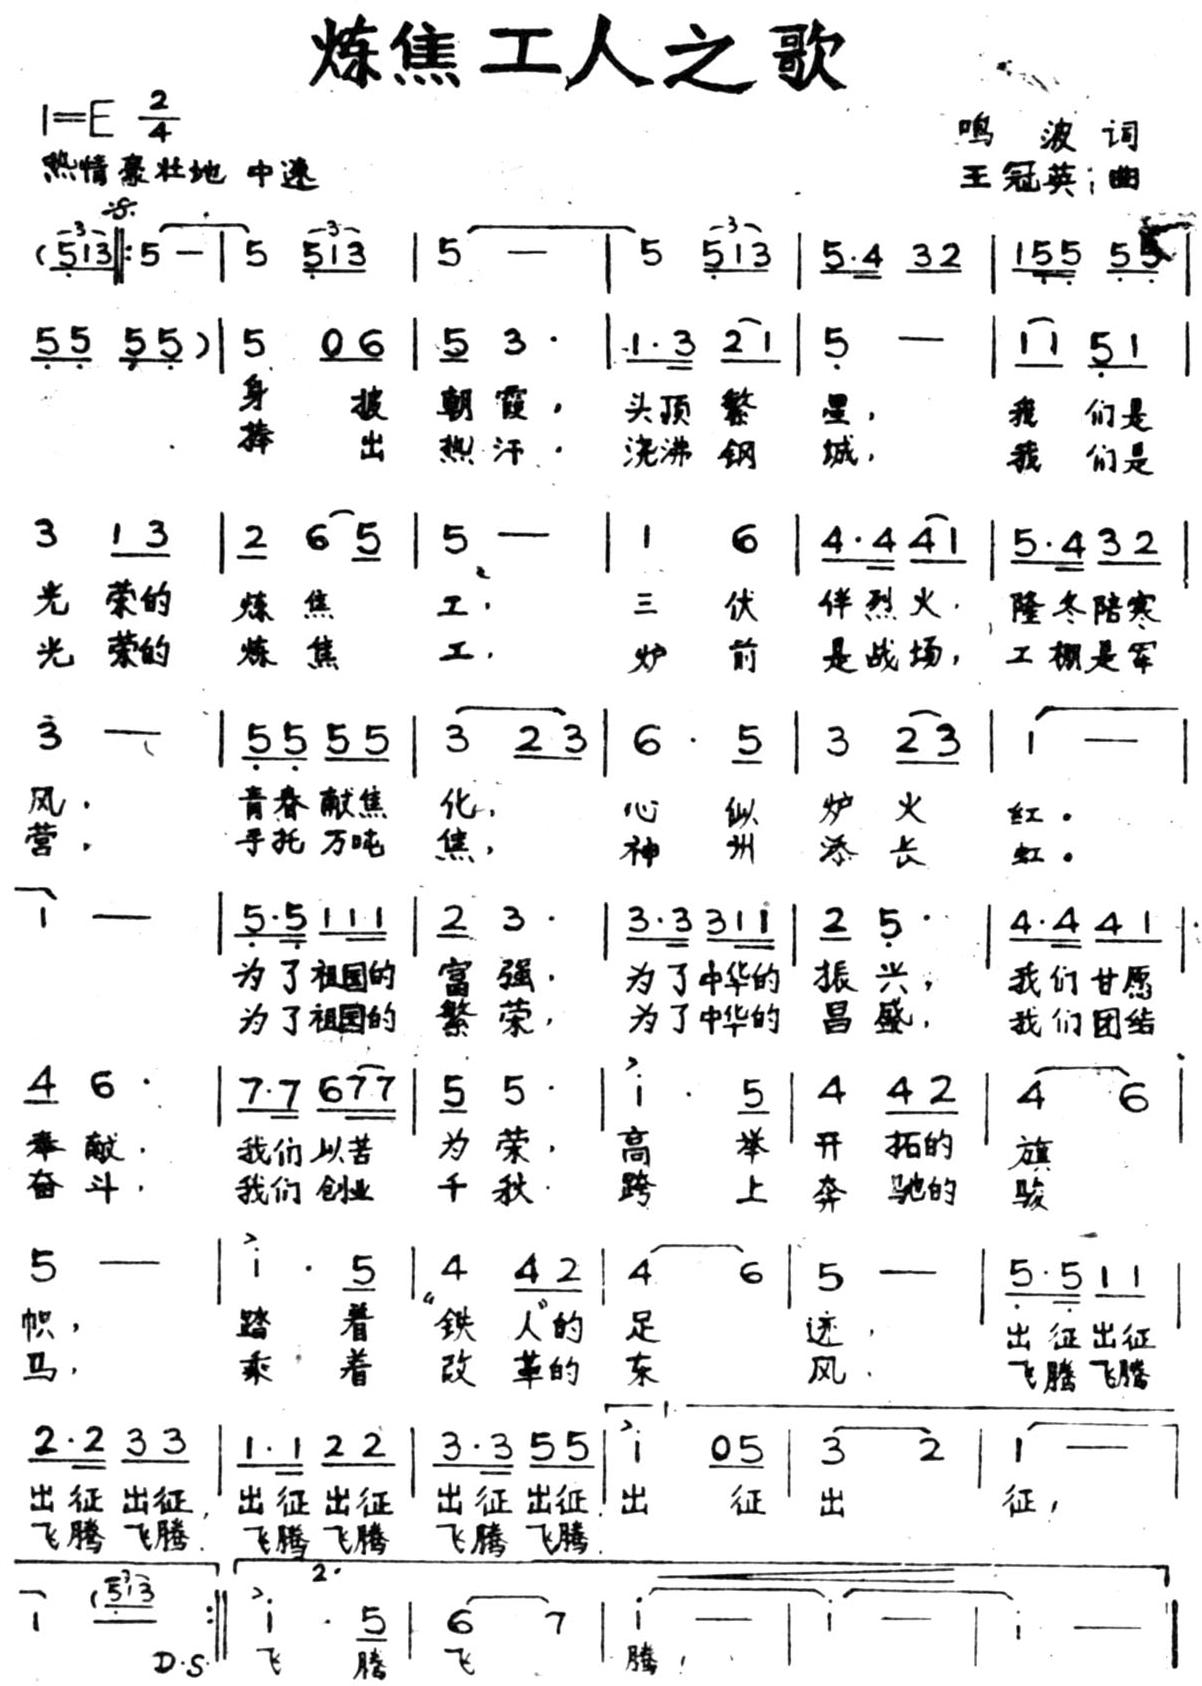 炼焦工人之歌
1=E 2/4
鸣波词
热情豪壮地 中速
王冠英曲
(513 ‖: 5 — | 5 513 | 5 — | 5 513 | 5·4 32 | 155 55 |
55 55) | 5 06 | 5 3· | 1·3 21 | 5 — | 11 51
身 披 朝霞, 头顶繁 星, 我 们是
捧 出 热汗, 浇沸钢 城, 我 们是
3 13 | 2 6 5 | 5 — | 1 6 | 4·4 41 | 5·4 32 |
光 荣的 炼焦 工, 三 伏 伴烈火, 隆冬陪寒
光 荣的 炼焦 工, 炉 前 是战场, 工棚是军
3 — | 55 55 | 3 23 | 6· 5 | 3 23 | 1 — |
风, 青春献焦 化, 心 似 炉 火 红。
营, 手托万吨 焦, 神 州 添 长 虹。
1 — | 5·5 111 | 2 3· | 3·3 311 | 2 5· | 4·4 41 |
为了祖国的 富强, 为了中华的 振兴, 我们甘愿
为了祖国的 繁荣, 为了中华的 昌盛, 我们团结
4 6· | 7·7 677 | 5 5· | i· 5 | 4 42 | 4 6 |
奉献, 我们以苦 为荣, 高 举 开 拓的 旗
奋斗, 我们创业 千秋. 跨 上 奔 驰的 骏
5 — | i· 5 | 4 42 | 4 6 | 5 — | 5·5 11 |
帜, 踏 着 “铁 人”的 足 迹, 出征出征
马, 乘 着 改 革的 东 风. 飞腾飞腾
1.
2·2 33 | 1·1 22 | 3·3 55 | i 05 | 3 2 | 1 — |
出征出征, 出征出征 出征出征, 出 征 出 征,
飞腾飞腾. 飞腾飞腾 飞腾飞腾
2.
1 (513 :‖ i· 5 | 6 7 | i — | i — | i — ‖
D.S. 飞 腾 飞 腾,